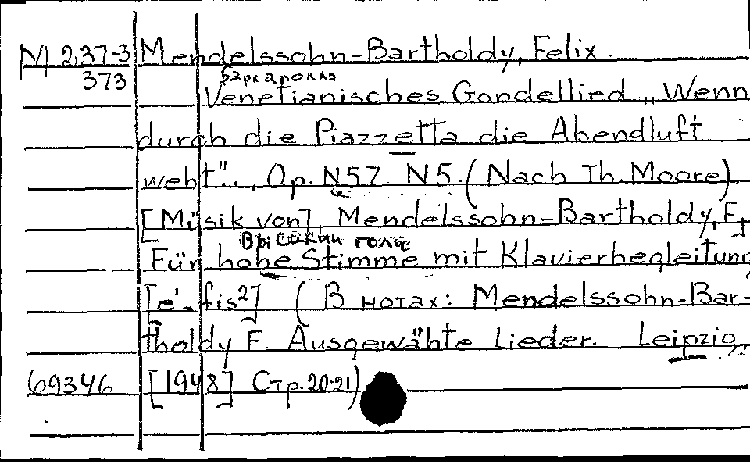 М 2,37-3 Mendelssohn-Bartholdy, Felix.
373 баркаролла
Venetianisches Gondellied „Wenn
durch die Piazzetta die Abendluft
weht"... Op. N57 N5. (Nach Th. Moore)
[Musik von] Mendelssohn-Bartholdy, F.,
Высокий голос
Für hohe Stimme mit Klavierbegleitung
[e'-fis²] (В нотах: Mendelssohn-Bar-
tholdy F. Ausgewähte Lieder. Leipzig,
69346 [1948] Стр. 20-21)